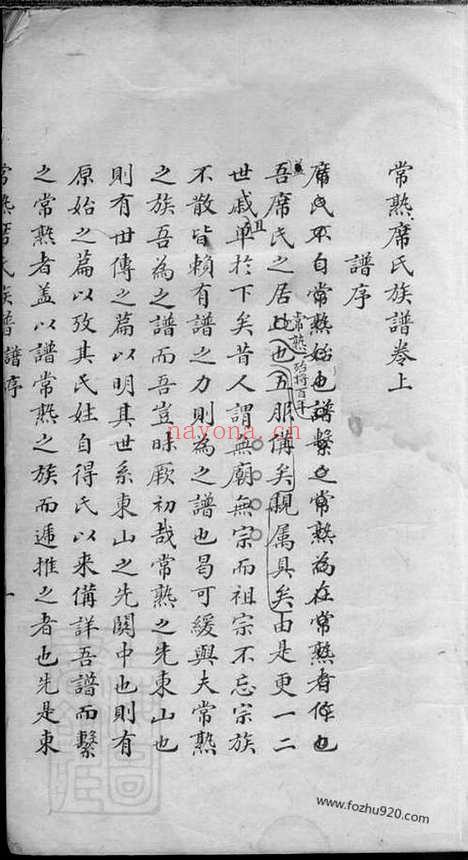 常熟席氏族譜卷上
譜序
席氏不自常熟始也譜繫之常熟為在常熟者作也
蓋吾席氏之居此也常熟殆將百年五服講矣親属具矣由是更一二
世戚單於下矣昔人謂無廟無宗而祖宗不忘宗族
不散皆賴有譜之力則為之譜也曷可緩與夫常熟
之族吾為之譜而吾豈昧厥初哉常熟之先東山也
則有世傳之篇以明其世系東山之先關中也則有
原始之篇以攷其氏姓自得氏以來備詳吾譜而繫
之常熟者盖以譜常熟之族而遞推之者也先是東
常熟席氏族譜 譜序
一
nayona.cn
www.fozhu920.com